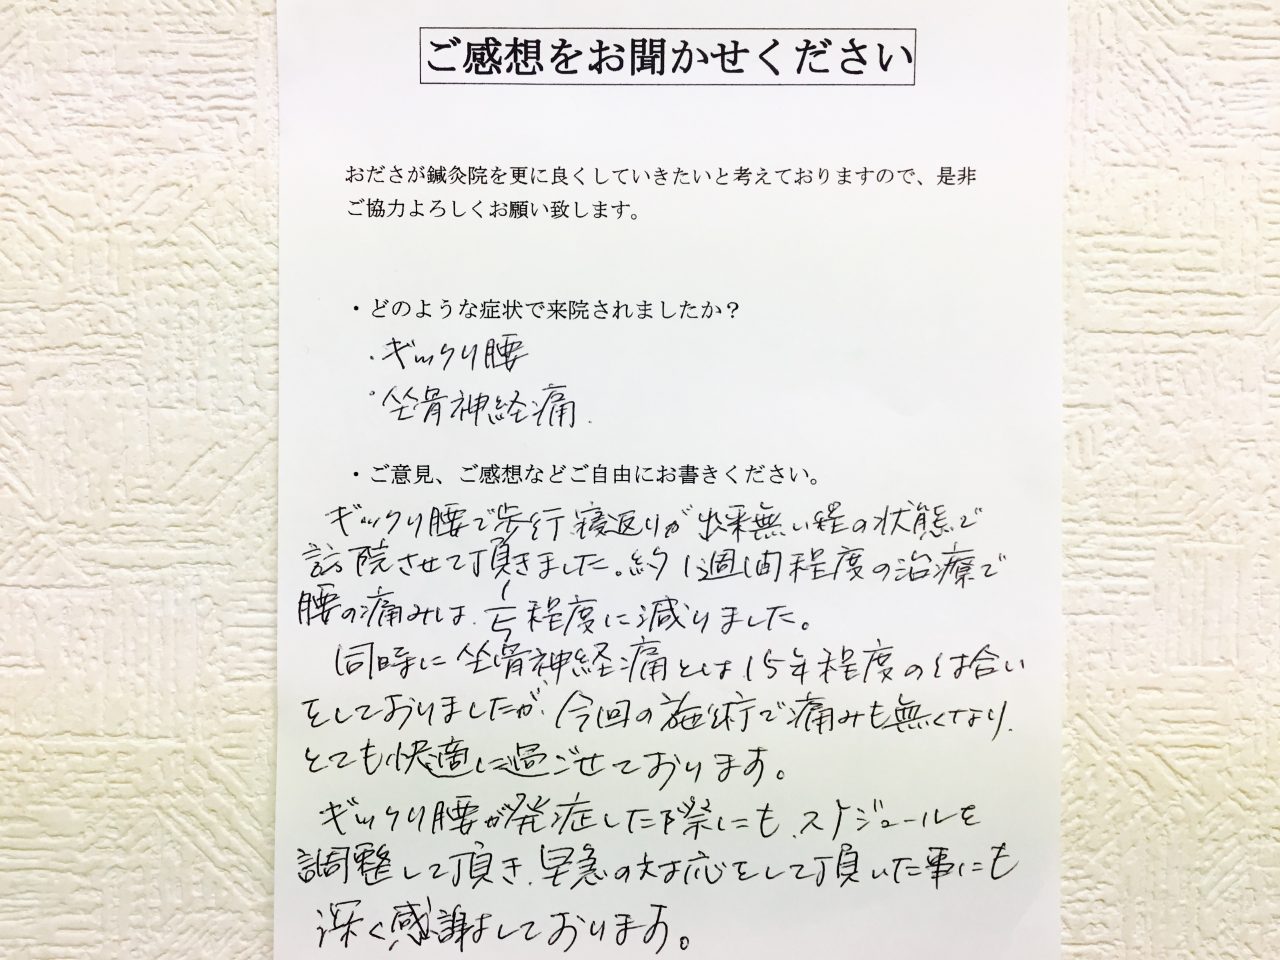 ご感想をお聞かせください
おださが鍼灸院を更に良くしていきたいと考えておりますので、是非
ご協力よろしくお願い致します。
・どのような症状で来院されましたか？
・ギックリ腰
・坐骨神経痛.
・ご意見、ご感想などご自由にお書きください。
ギックリ腰で歩行、寝返りが出来無い程の状態で
訪院させて頂きました。約1週間程度の治療で
腰の痛みは、1/5程度に減りました。
同時に坐骨神経痛とは15年程度のつき合い
をしておりましたが、今回の施術で痛みも無くなり、
とても快適に過ごせております。
ギックリ腰が発症した際にも、スケジュールを
調整して頂き、早急の対応をして頂いた事にも
深く感謝しております。